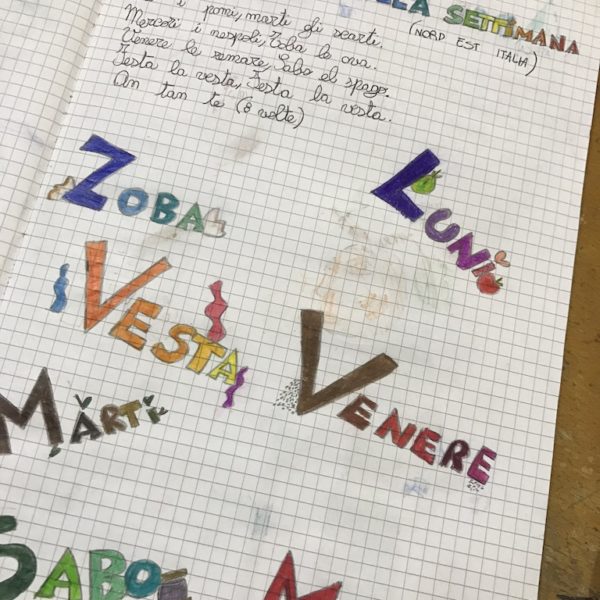 LLA SETTIMANA
(NORD EST ITALIA)
i pomi, marti gli scarti.
Mercori i nespoli, Zoba le ova.
Venere le Sabo el spago.
Festa la vesta, Festa la vesta.
An tan te (8 volte)
ZOBA
LUNI
VESTA
VENERE
MARTI
SABO
M